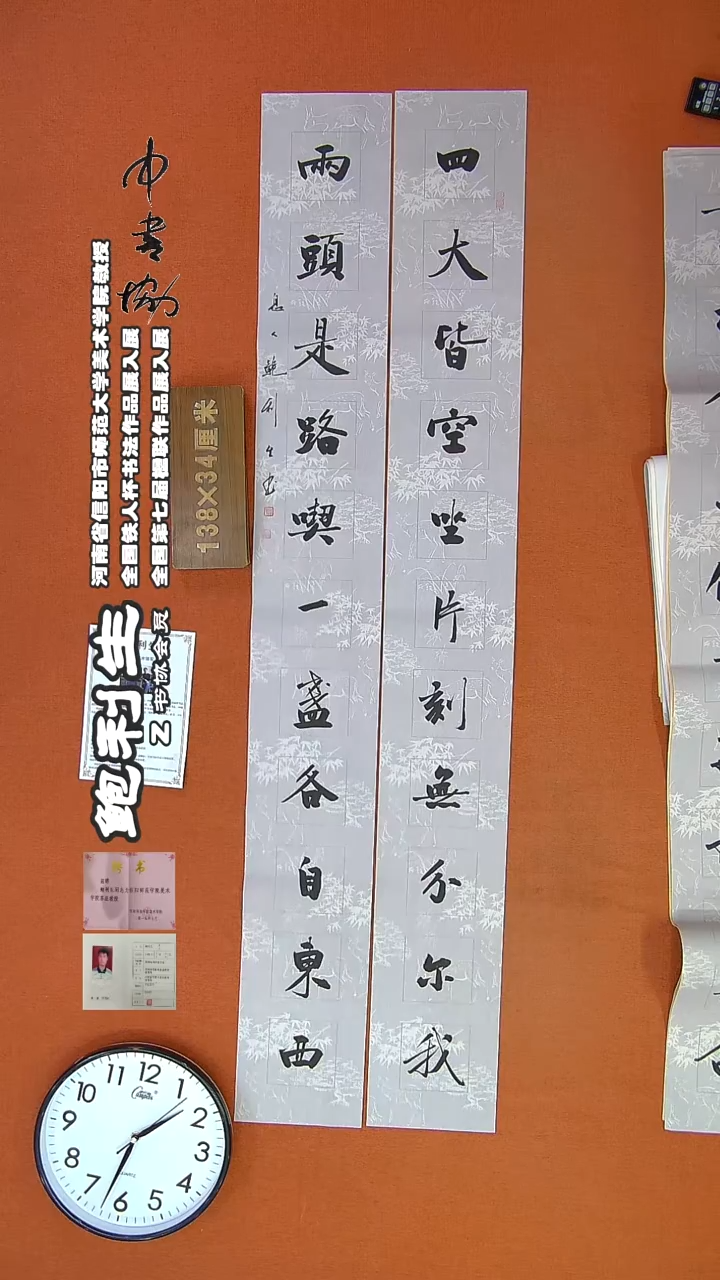 四大皆空坐片刻無分尔我
兩頭是路喫一盏各自東西
鲍利生书
中书协
河南省信阳市师范大学美术学院教授
全国铁人杯书法作品展入展
全国第七届楹联作品展入展
138×34厘米
鲍利生
Z书协会员
聘书
12
1
2
3
4
5
6
7
8
9
10
11